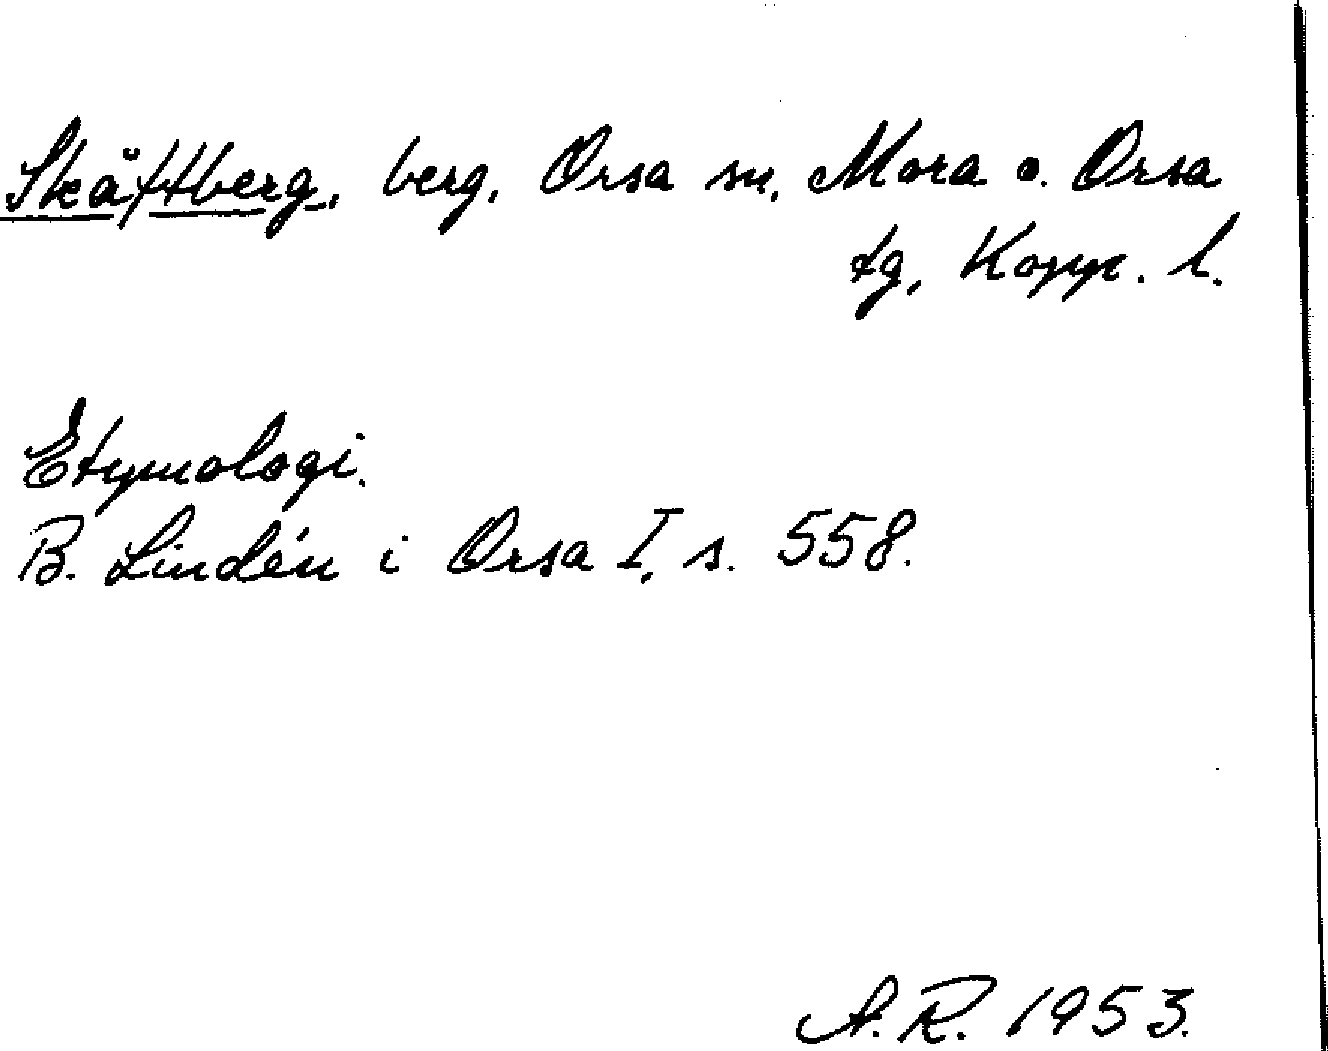 Skäftberg, berg, Orsa sn, Mora o. Orsa
tg, Kopp. l.
Etymologi.
B. Lindén i Orsa I, s. 558.
A.R. 1953.